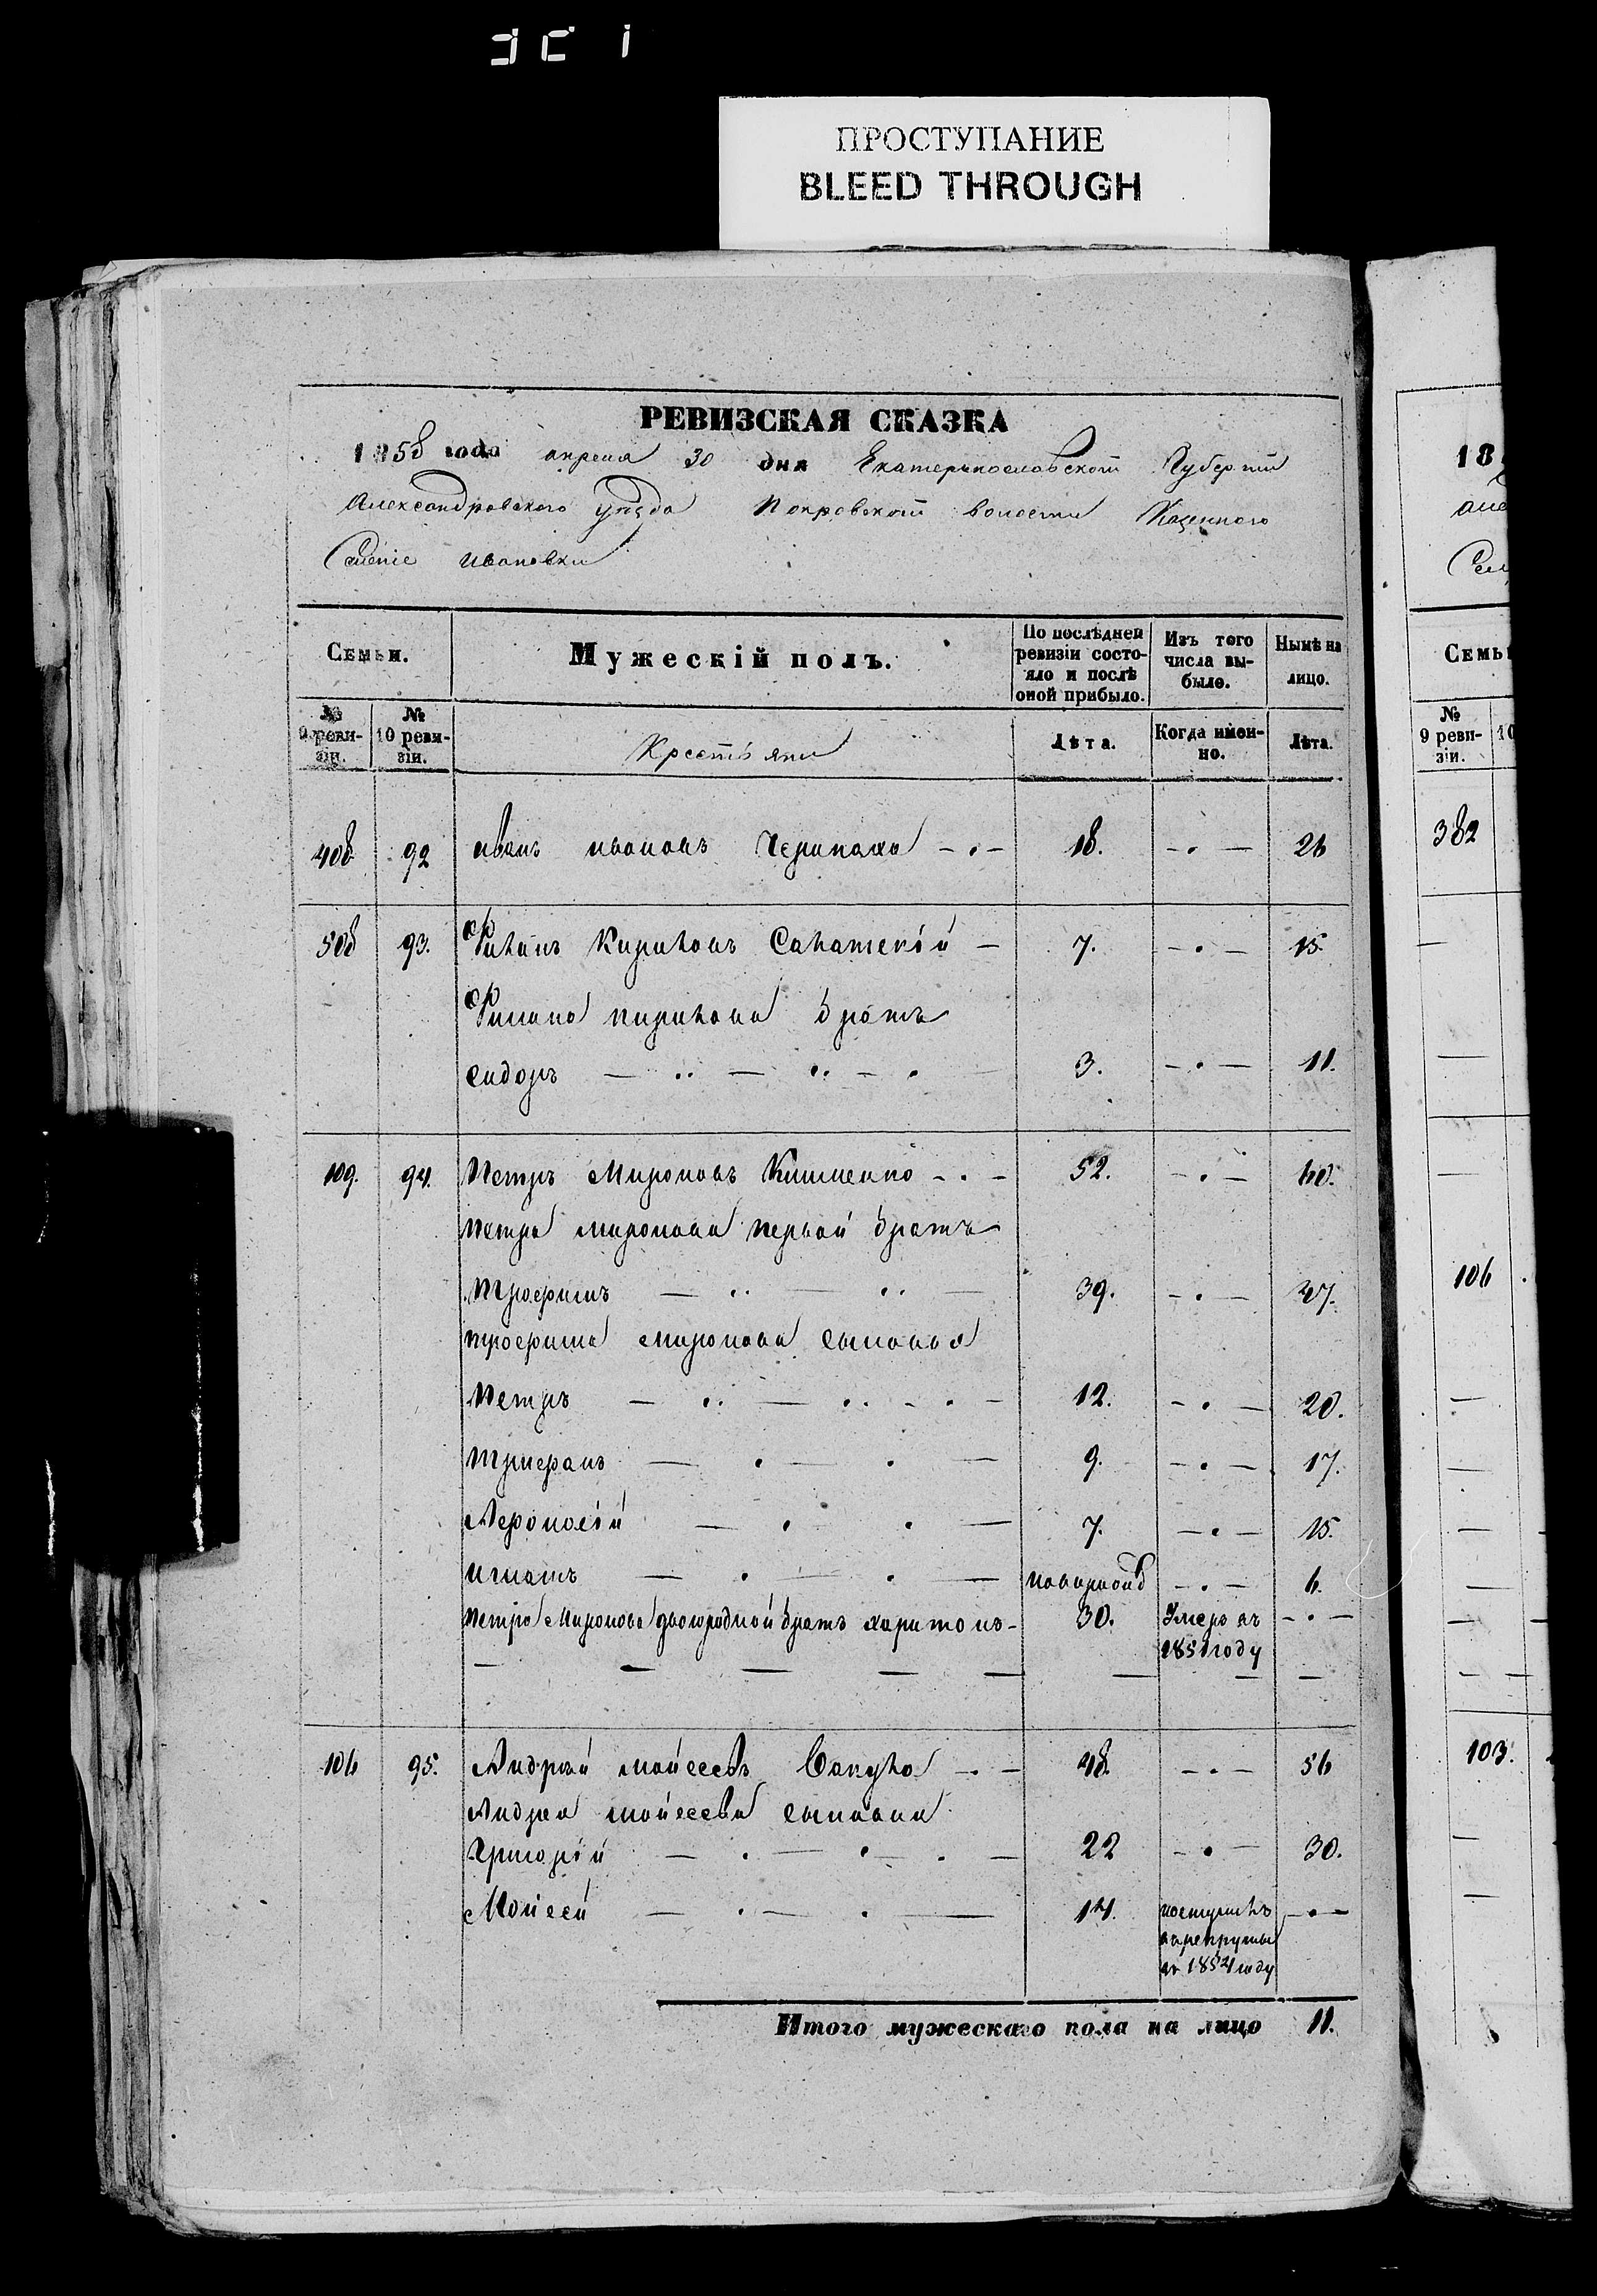 ПРОСТУПАНИЕ
BLEED THROUGH
РЕВИЗСКАЯ СКАЗКА
1858 года апреля 30 дня Екатеринославской Губернии
Александровского уезда Покровской волости Казенного
Селеніе Ивановки
Семьи.
Мужескій полъ.
По послѣдней ревизіи состояло и послѣ оной прибыло.
Изъ того числа выбыло.
Нынѣ на лицо.
№ 9 ревизіи.
№ 10 ревизіи.
Крестьяни
Лѣта.
Когда именно.
Лѣта.
408 92 иванъ ивановъ Черипаха 18. 26
508 93. Кириловъ 7. 15
Кирилова братъ
сидоръ 3. 11.
109. 94. Петръ Мироновъ Клименко 52. 60.
Петра миронова первой братъ
Трофимъ 39. 47.
трофима миронова сыновья
Петръ 12. 20.
Трифанъ 9. 17.
Афонасій 7. 15.
игнатъ новорожд 6.
Петра Миронова двоюродной братъ харитонъ 30. Умеръ въ
1851 году
106 95. Андрей мойсеевъ 48. 56
Андрея мойсеева сыновья
Григорій 22 30.
Мойсей 14. поступилъ
в рекруты
въ 1854 году
Итого мужескаго пола на лицо 11.
18
Семь
№ 9 ревизіи.
10
382
106
103.